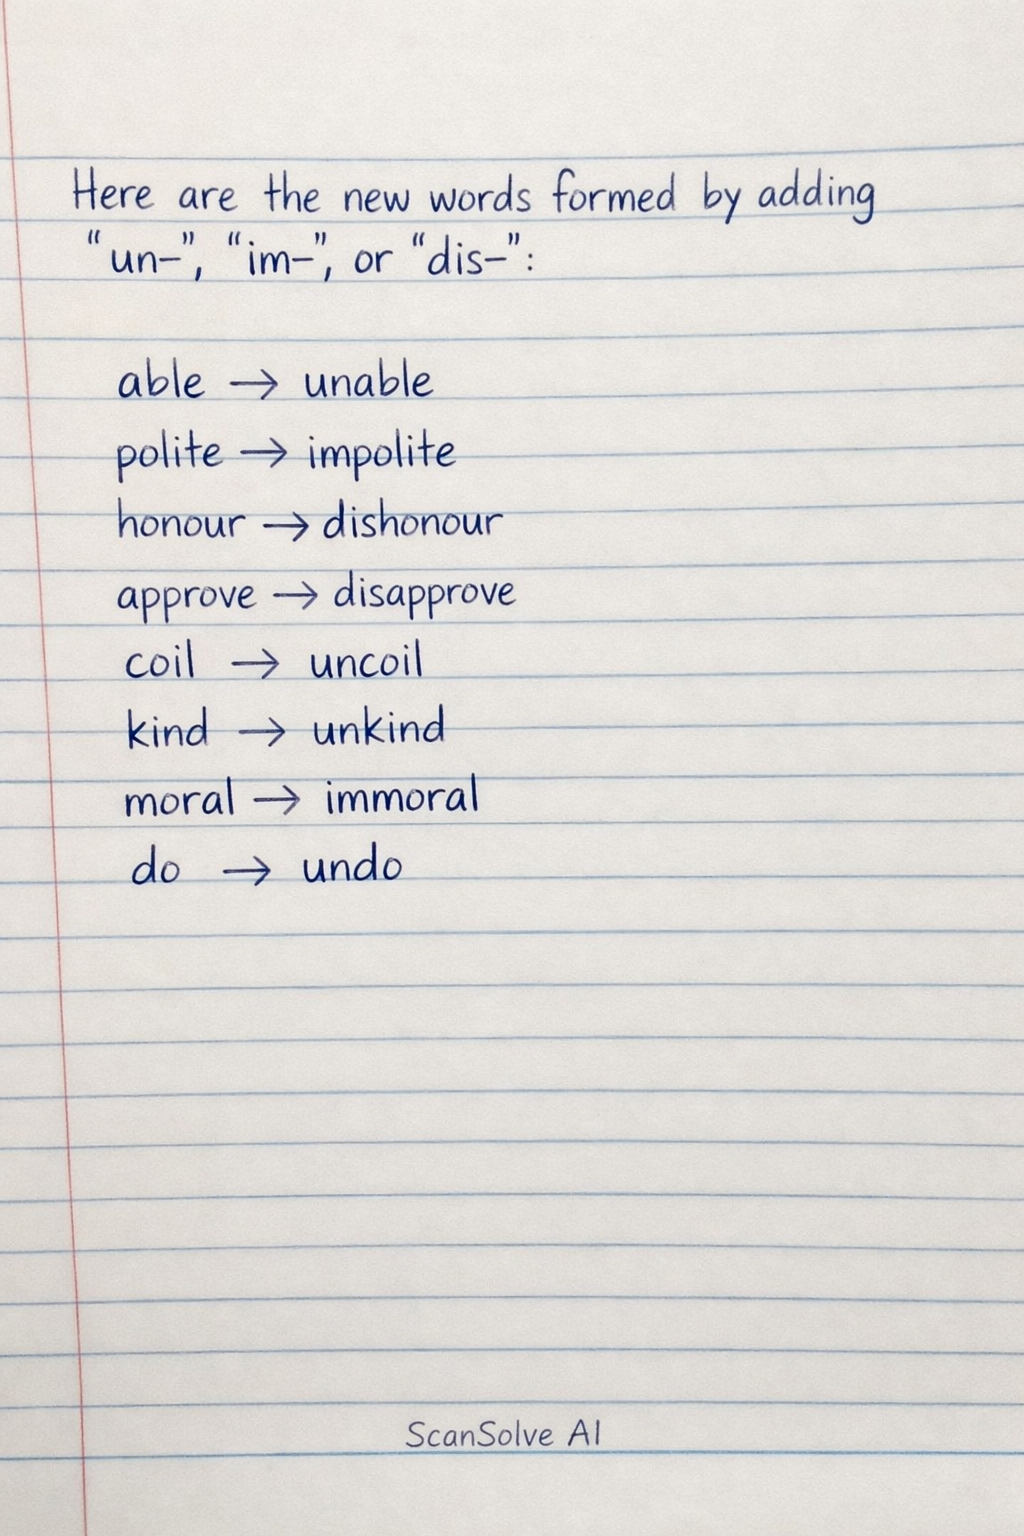 Here are the new words formed by adding
“un–”, “im–”, or “dis–”:
able → unable
polite → impolite
honour → dishonour
approve → disapprove
coil → uncoil
kind → unkind
moral → immoral
do → undo
ScanSolve AI